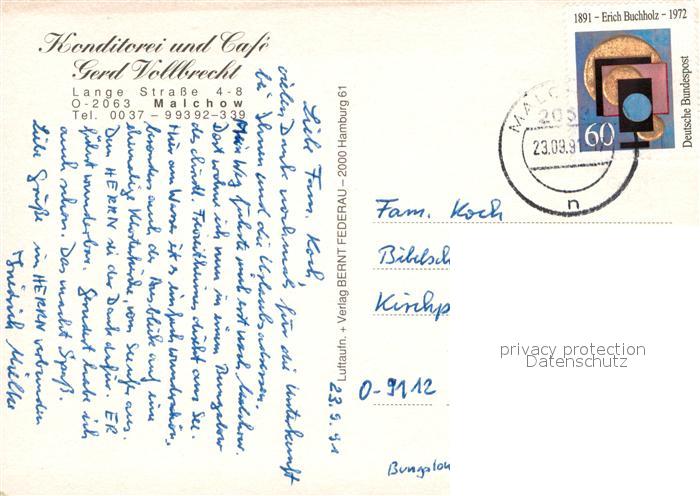 Konditorei und Café
Gerd Vollbrecht
Lange Straße 4-8
O-2063 Malchow
Tel. 0037 – 99392-339
1891 – Erich Buchholz – 1972
Deutsche Bundespost
60
MALC
2063
23.09.91
n
Luftaufn. + Verlag BERNT FEDERAU – 2000 Hamburg 61
23.9.91
Liebe Fam. Koch,
vielen Dank nochmals für die Unterkunft
bei Ihnen und die Urlaubsadressen.
Mein Weg führte mich erst nach Malchow.
Dort wohne ich nun in einem Bungalow
des christl. Freizeitheimes direkt am See.
Hier am Wasser ist es einfach wunderschön,
besonders auch der Ausblick auf eine
ehemalige Klosterkirche, vom Seeufer aus.
Dem HERRN sei der Dank dafür. ER
führt wunderbar. Gerudert habe ich
auch schon. Das macht Spaß.
Liebe Grüße im HERRN verbunden
Friedrich Mielke
Fam. Koch
Bibelsch
Kirchp
O-9112
Bungalow
privacy protection
Datenschutz